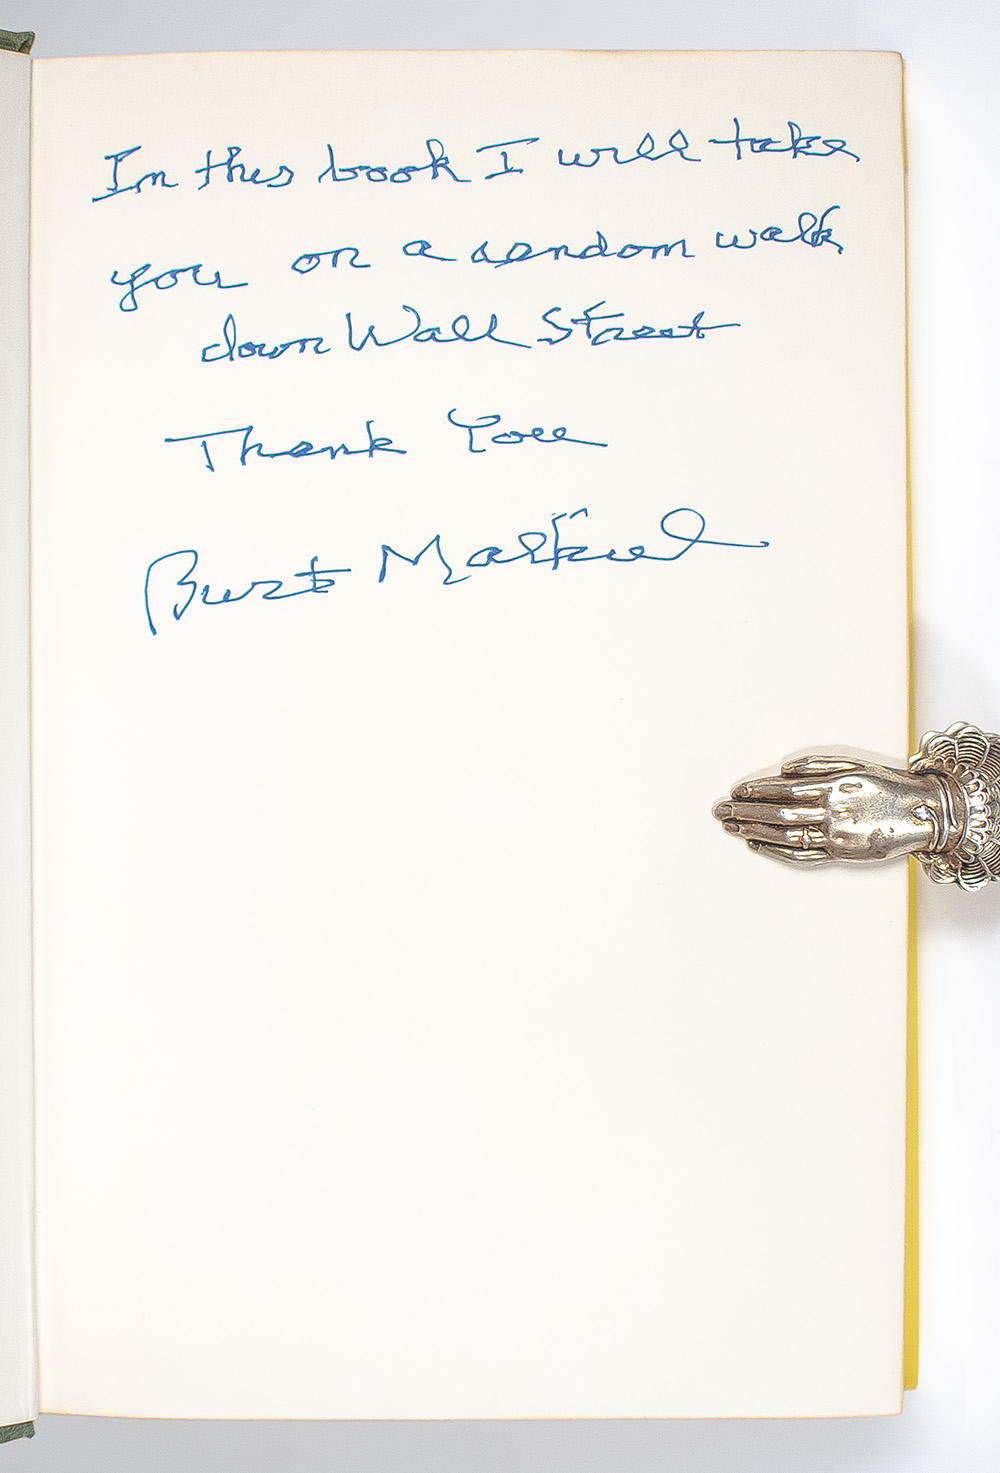 In this book I will take
you on a random walk
down Wall Street
Thank You
Burt Malkiel